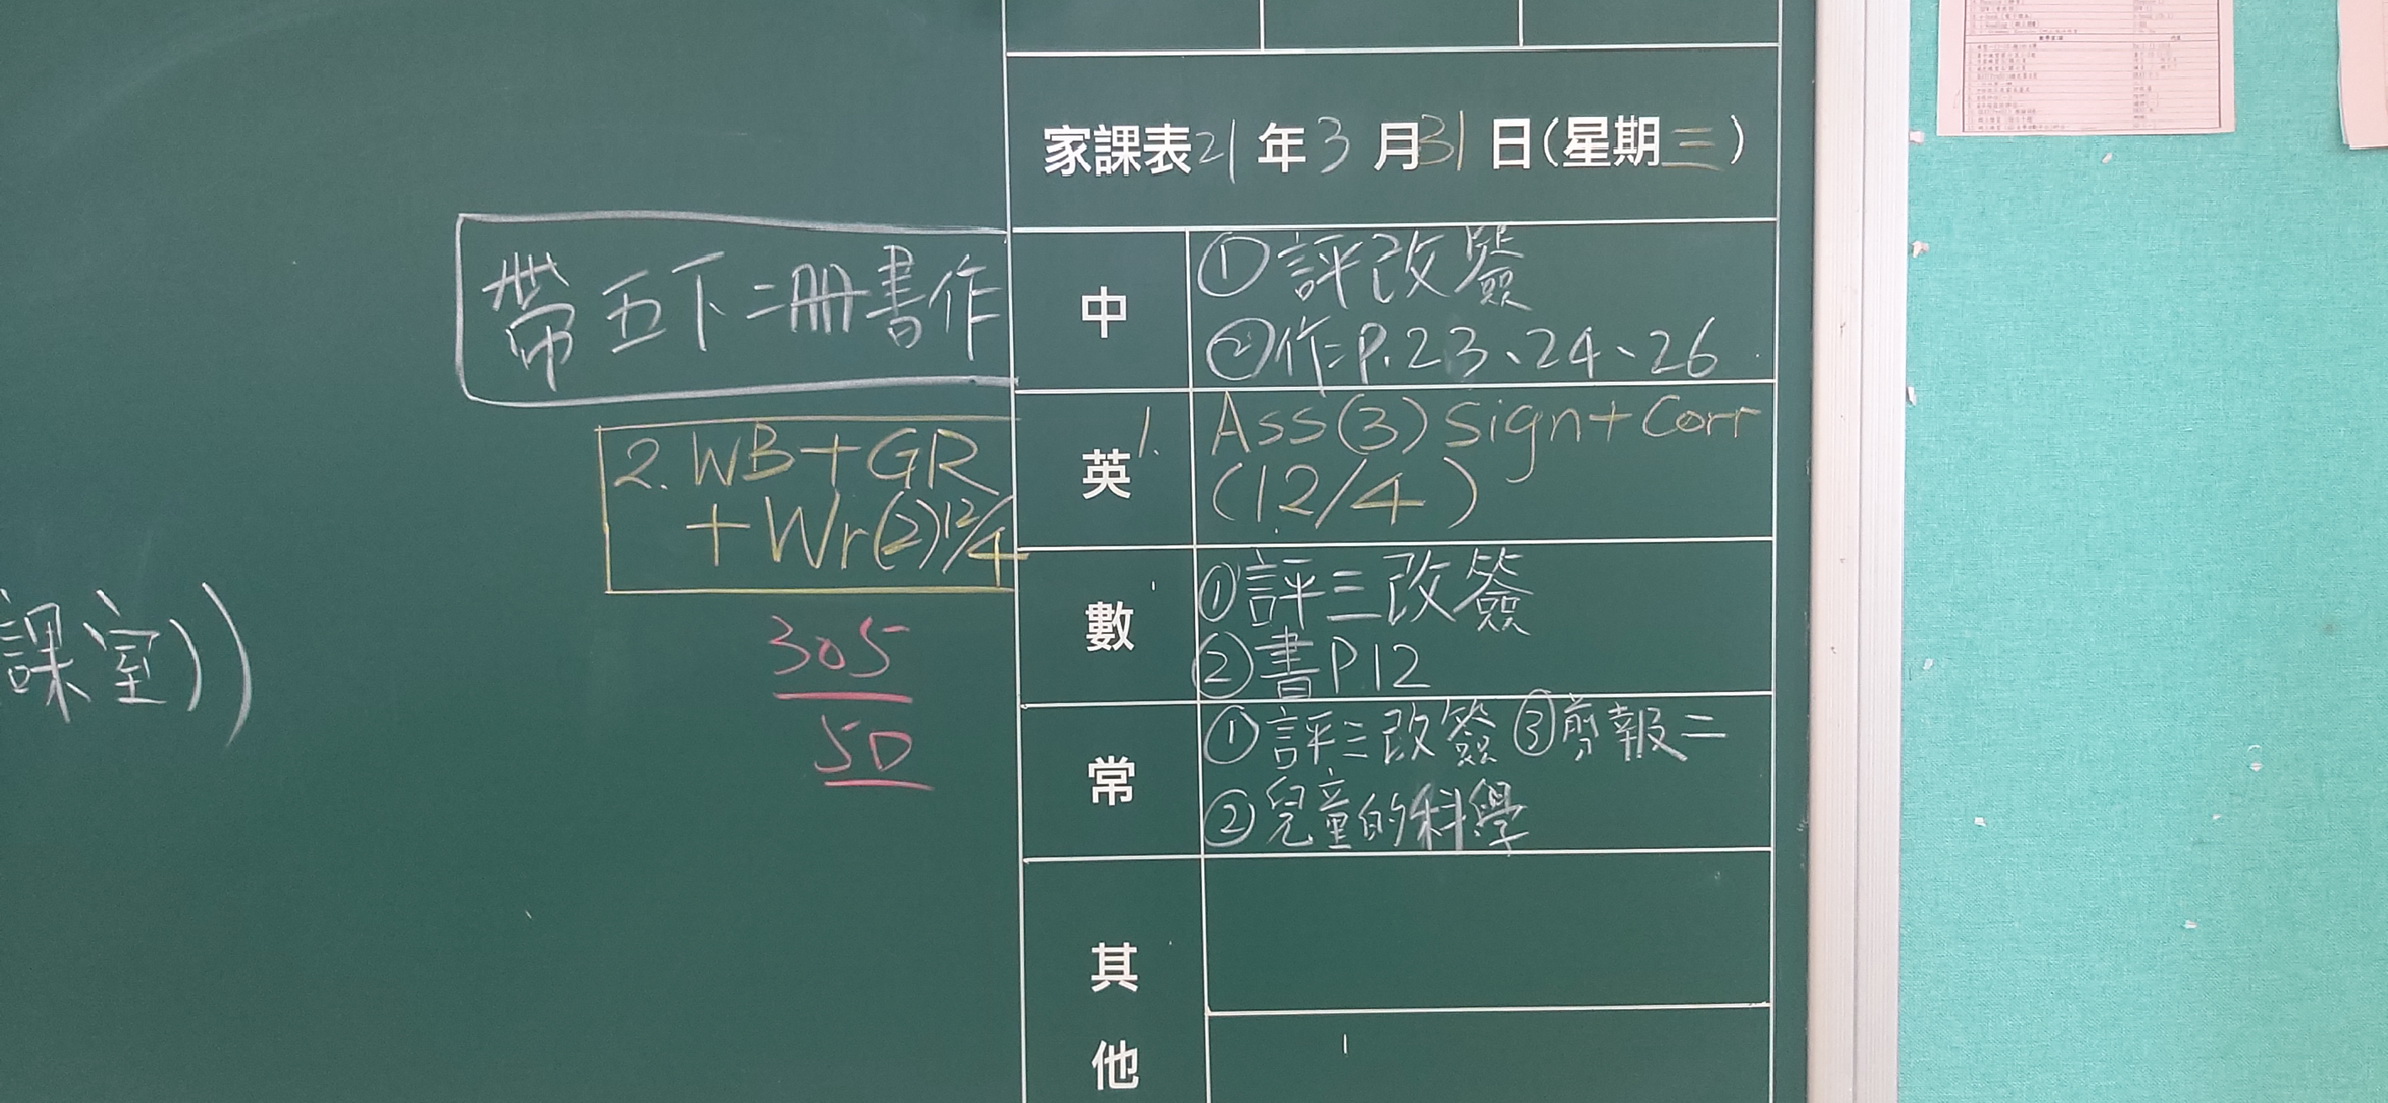 家課表21年3月31日(星期三)
帶五下二冊書作
中
①評改簽
②作:P.23、24、26
英
1. Ass(3) sign+Corr
(12/4)
2. WB+GR
+Wr(2)12/4
數
①評三改簽
②書P12
305
50
常
①評三改簽 ③剪報二
②兒童的科學
課室))
其
他